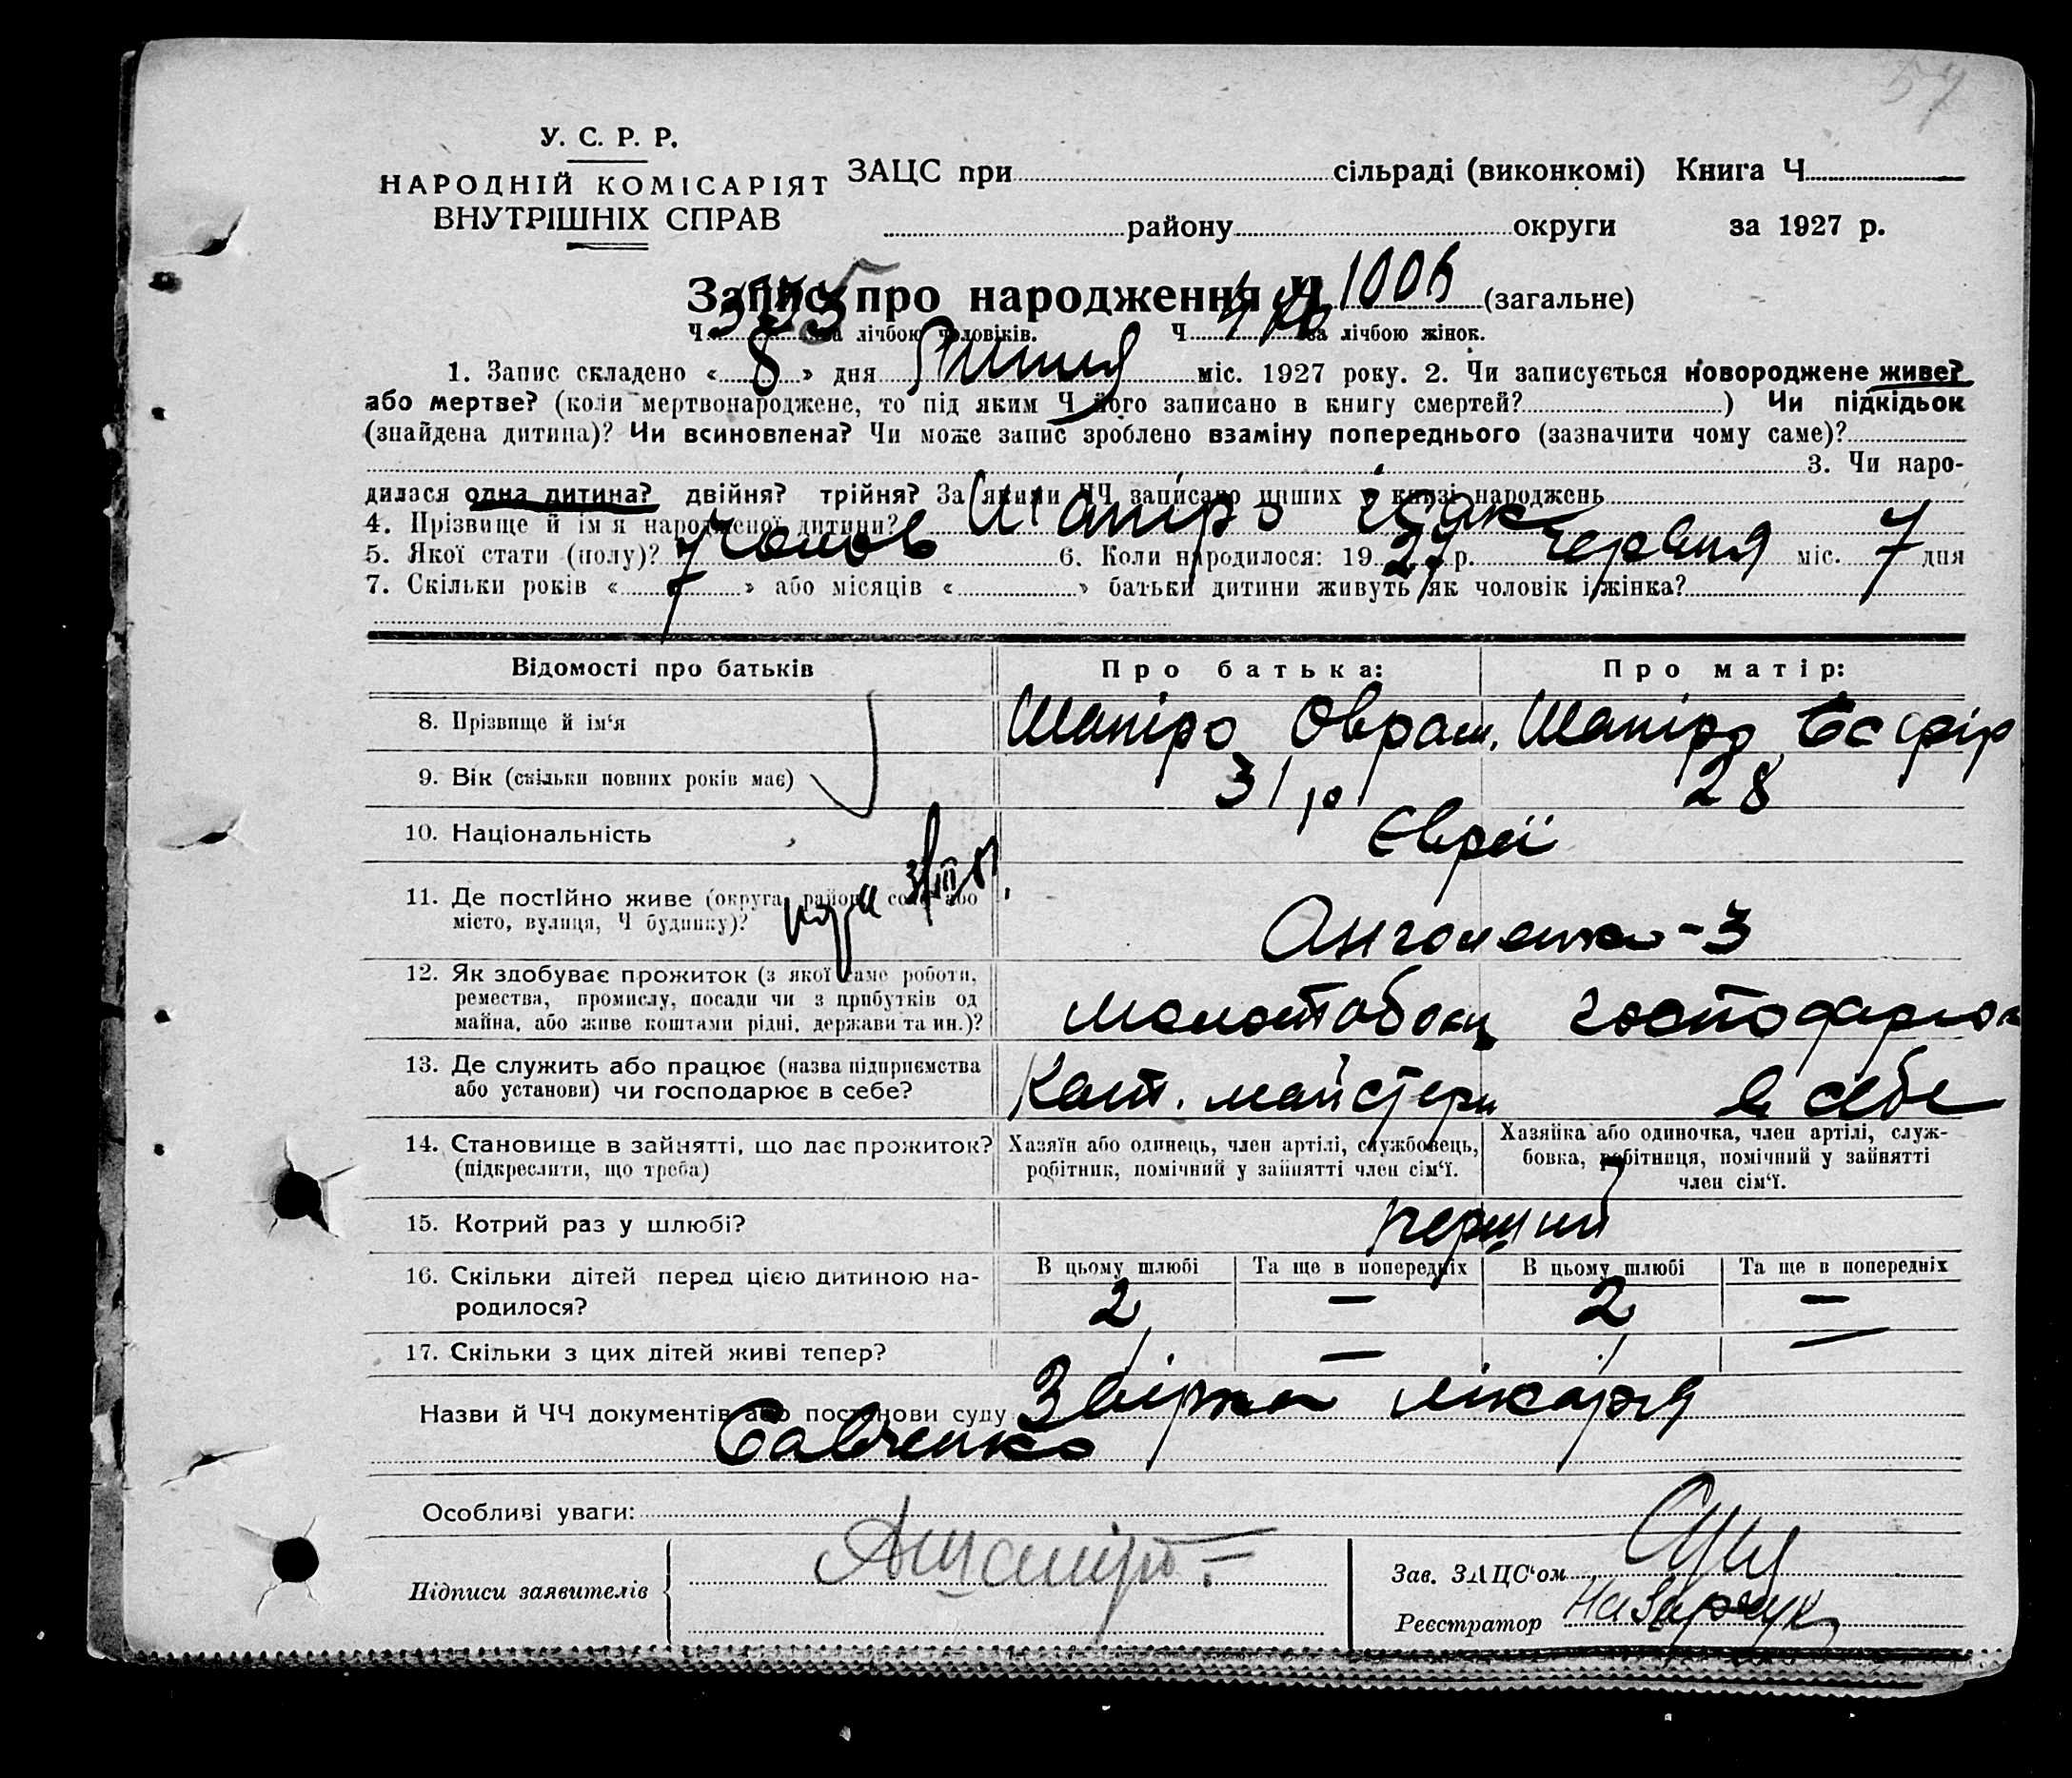 57
У. С. Р. Р.
НАРОДНІЙ КОМІСАРІЯТ
ВНУТРІШНІХ СПРАВ
ЗАЦС при сільраді (виконкомі) Книга Ч
району округи за 1927 р.
Запис про народження Ч 1005 (загальне)
Ч за лічбою чоловіків. Ч за лічбою жінок.
1. Запис складено « 8 » дня Липня міс. 1927 року. 2. Чи записується новороджене живе?
або мертве? (коли мертвонароджене, то під яким Ч його записано в книгу смертей? ) Чи підкідьок
(знайдена дитина)? Чи всиновлена? Чи може запис зроблено взаміну попереднього (зазначити чому саме)?
3. Чи наро-
дилася одна дитина? двійня? трійня? За якими ЧЧ записано инших в книзі народжень
4. Прізвище й ім'я народженої дитини? Шапіро Ісак
5. Якої стати (полу)? Чолов 6. Коли народилося: 1927 р. Червня міс. 7 дня
7. Скільки років « 7 » або місяців « » батьки дитини живуть як чоловік і жінка?
Відомості про батьків Про батька: Про матір:
8. Прізвище й ім‘я Шапіро Оврам. Шапіро Есфір
9. Вік (скільки повних років має) 31 р 28
10. Національність Євреї
11. Де постійно живе (округа, район, село або
місто, вулиця, Ч будинку)? - 3
12. Як здобуває прожиток (з якої саме роботи,
ремества, промислу, посади чи з прибутків од
майна, або живе коштами рідні, держави та ин.)? молотобоєц господарює
13. Де служить або працює (назва підприємства
або установи) чи господарює в себе? майстерн в себе
14. Становище в зайнятті, що дає прожиток?
(підкреслити, що треба)
Хазяїн або одинець, член артілі, службовець,
робітник, помічний у зайнятті член сім‘ї.
Хазяйка або одиночка, член артілі, служ-
бовка, робітниця, помічний у зайнятті
член сім‘ї.
15. Котрий раз у шлюбі? перший
16. Скільки дітей перед цією дитиною на-
родилося?
В цьому шлюбі Та ще в попередніх В цьому шлюбі Та ще в попередніх
2 — 2 —
17. Скільки з цих дітей живі тепер? 1 — 1 —
Назви й ЧЧ документів або постанови суду Звірка лікаря
Савченко
Особливі уваги:
Підписи заявителів АШапіро
Зав. ЗАЦС‘ом
Реєстратор Назарчук